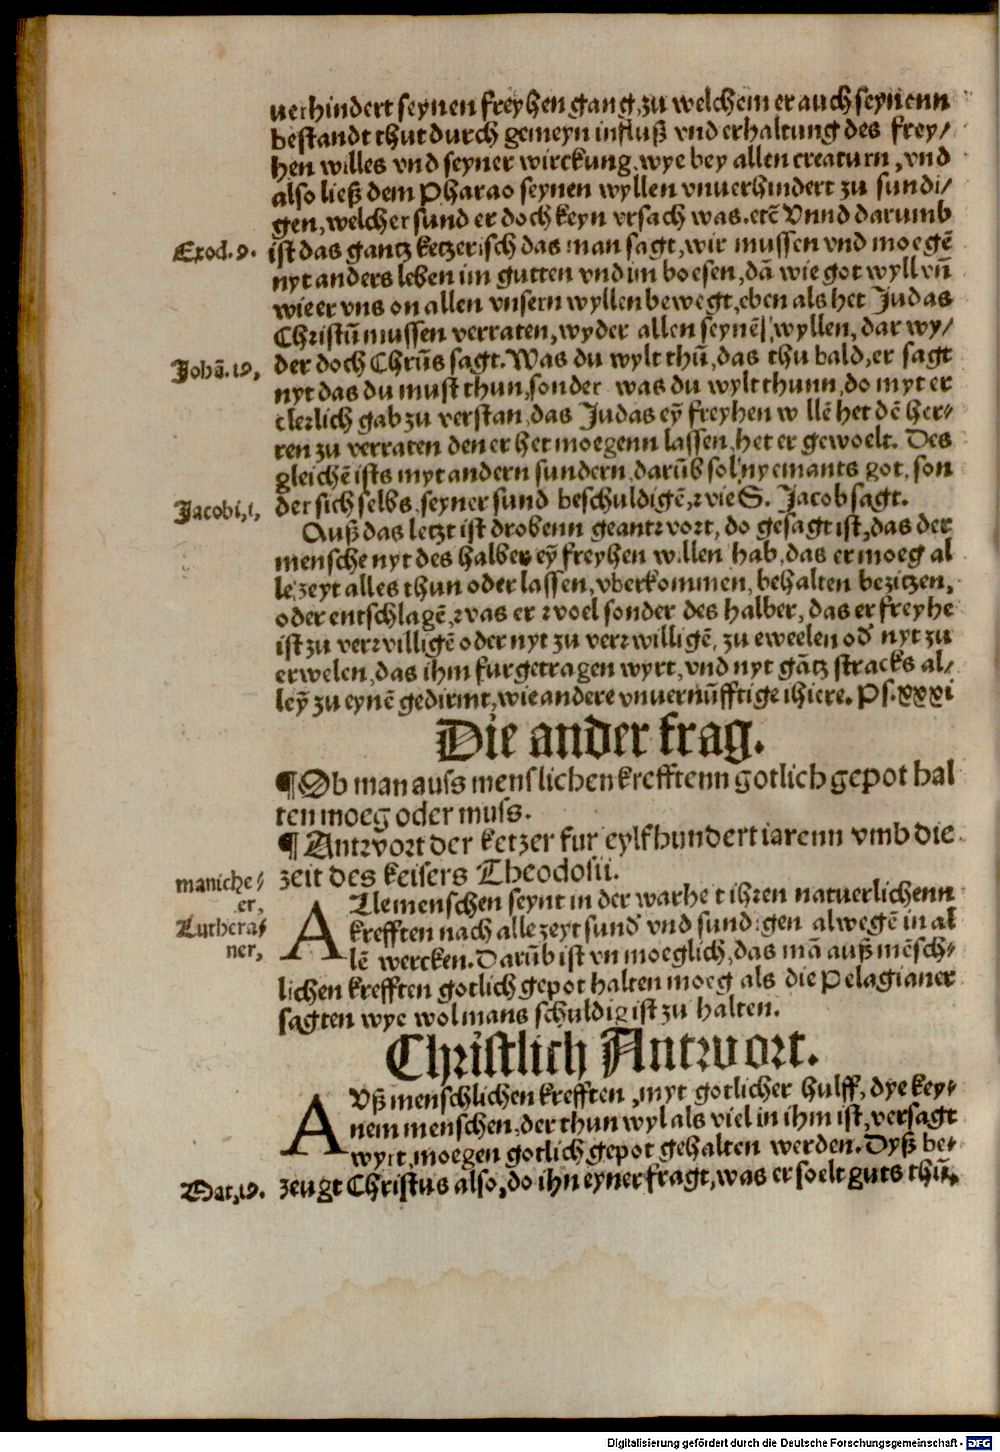 verhindert seynen freyhen gang, zu welchem er auch seynenn
bestandt thut durch gemeyn influß vnd erhaltung des frey/
hen willes vnd seyner wirckung, wye bey allen creaturn, vnd
also ließ dem Pharao seynen wyllen vnuerhindert zu sundi/
gen, welcher sund er doch keyn vrsach was. etc̄ Vnnd darumb
Exod. 9. ist das gantz ketzerisch das man sagt, wir mussen vnd moegē
nyt anders leben im gutten vnd im boesen, dā wie got wyll vn̄
wie er vns on allen vnsern wyllen bewegt, eben als het Judas
Christū mussen verraten, wyder allen seynē wyllen, dar wy/
Johā. 19, der doch Chrūs sagt. Was du wylt thū, das thu bald, er sagt
nyt das du must thun, sonder was du wylt thunn, do myt er
clerlich gab zu verstan, das Judas eȳ freyhen w llē het dē her-
ren zu verraten den er het moegenn lassen, het er gewoelt. Des
gleichē ists myt andern sundern, darūb sol nyemants got, son
Jacobi, 1, der sich selbs, seyner sund beschuldigē, wie S. Jacob sagt.
Auß das letzt ist drobenn geantwort, do gesagt ist, das der
mensche nyt des halber eȳ freyhen willen hab, das er moeg al
le zeyt alles thun oder lassen, vberkommen, behalten bezitzen,
oder entschlagē, was er woel sonder des halber, das er freyhe
ist zu verwilligē oder nyt zu verwilligē, zu eweelen od' nyt zu
erwelen, das ihm furgetragen wyrt, vnd nyt gātz stracks al/
leȳ zu eynē gedirmt, wie andere vnuernūfftige thiere. Ps. xxxi
Die ander frag.
¶ Ob man auss menslichen krefftenn gotlich gepot hal
ten moeg oder muss.
¶ Antwort der ketzer fur eylfhundert iarenn vmb die
zeit des keisers Theodosii.
maniche/
er,
Luthera/
ner,
Alle menschen seynt in der warhe t ihren natuerlichenn
krefften nach alle zeyt sund' vnd sundigen alwegē in al
lē wercken. Darūb ist vn moeglich, das mā auß mēsch-
lichen krefften gotlich gepot halten moeg als die Pelagianer
sagten wye wol mans schuldig ist zu halten.
Christlich Antwort.
AVß menschlichen krefften, myt gotlicher hulff, dye key-
nem menschen, der thun wyl als viel in ihm ist, versagt
wyrt, moegen gotlich gepot gehalten werden. Dyß be-
Mat, 19. zeugt Christus also, do ihn eyner fragt, was er soelt guts thū,
Digitalisierung gefördert durch die Deutsche Forschungsgemeinschaft - DFG